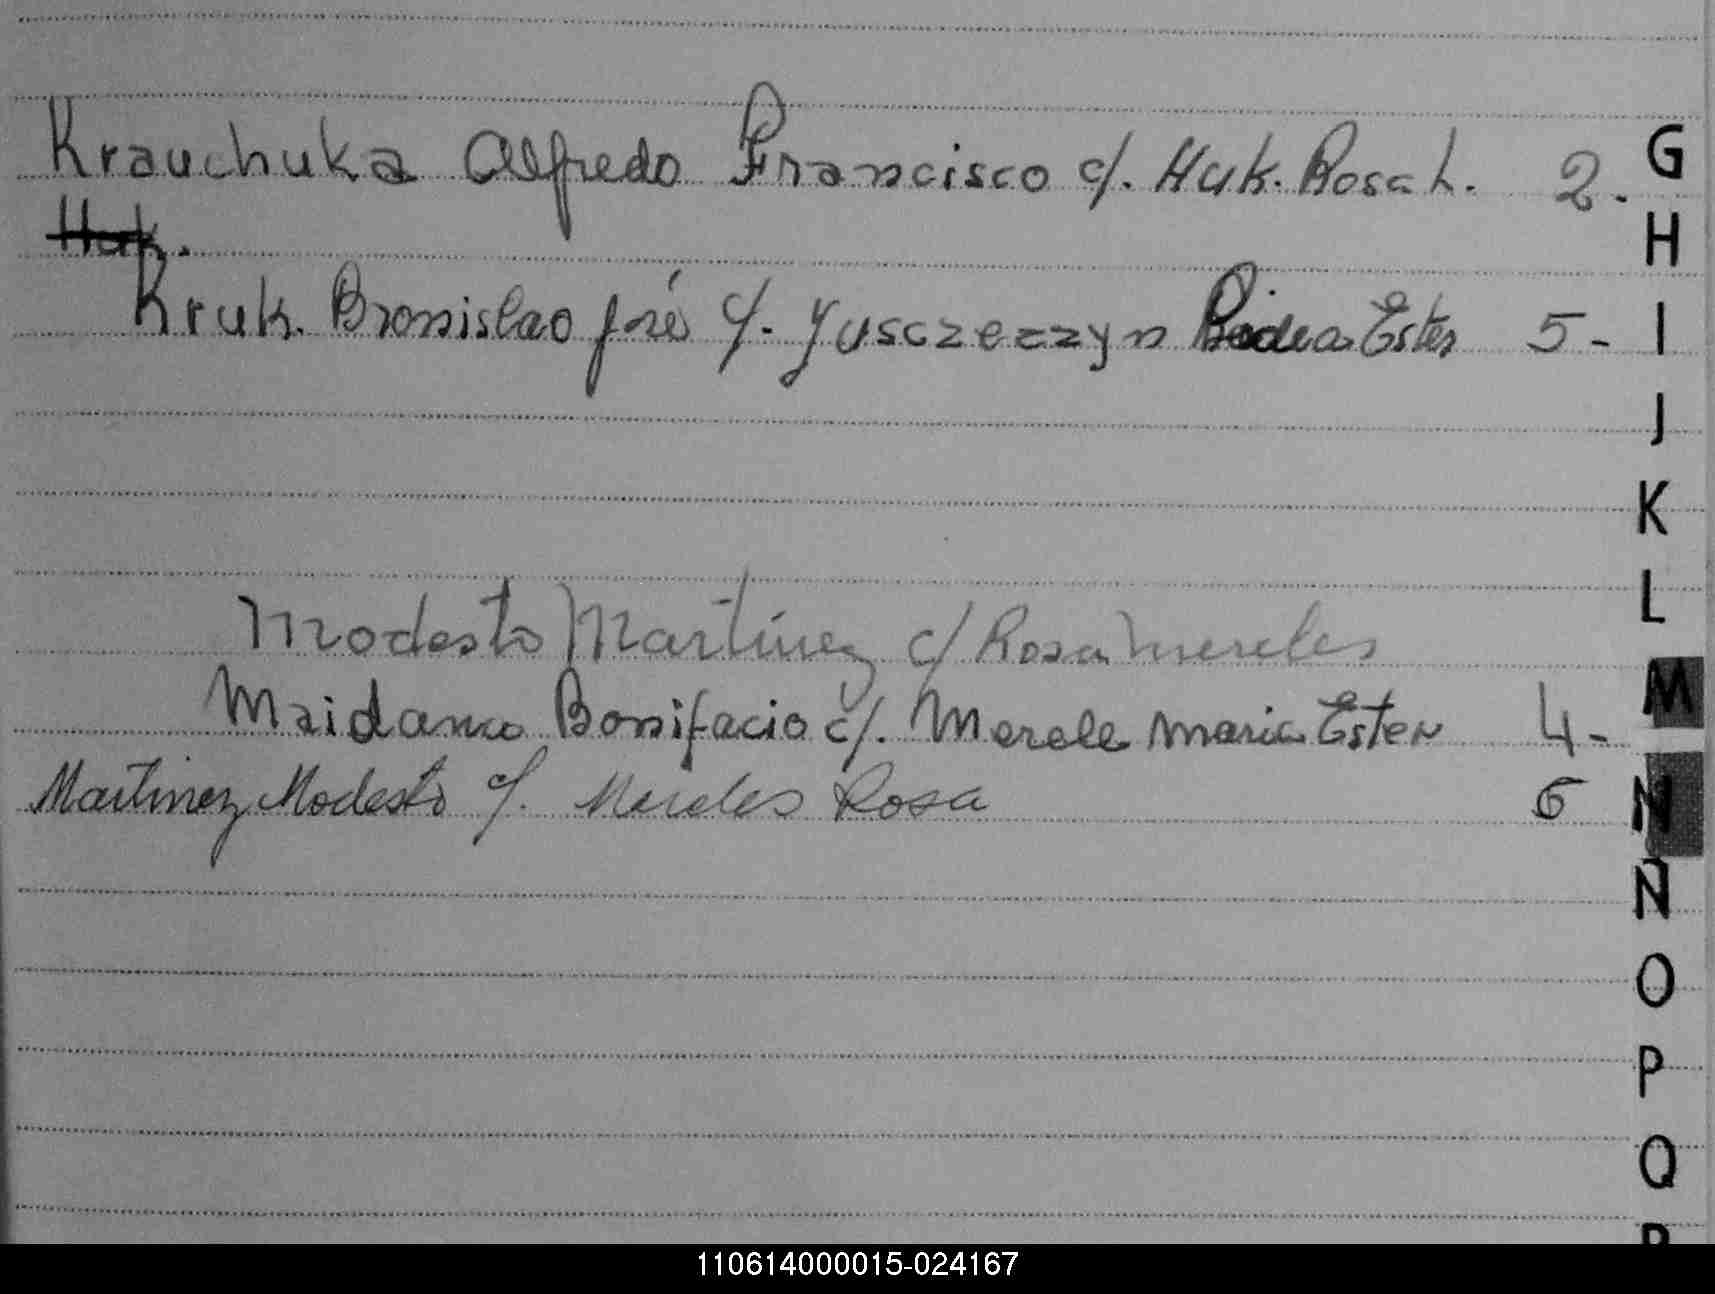 Krauchuka Alfredo Francisco c/. Huk. Rosa L. 2.
Huk.
Kruk. Bronislao José c/. Jusczezzyn Ester 5-
Modesto Martínez c/ Rosa Mereles
Maidana Bonifacio c/. Merele Maria Ester 4-
Martinez Modesto c/. Mereles Rosa 6
G
H
I
J
K
L
M
N
Ñ
O
P
Q
R
110614000015-024167